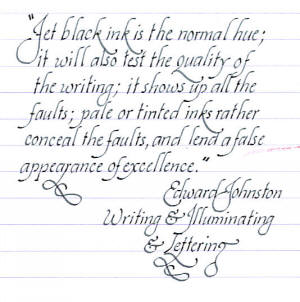 "Jet black ink is the normal hue;
it will also test the quality of
the writing; it shows up all the
faults; pale or tinted inks rather
conceal the faults, and lend a false
appearance of excellence."
Edward Johnston
Writing & Illuminating
& Lettering